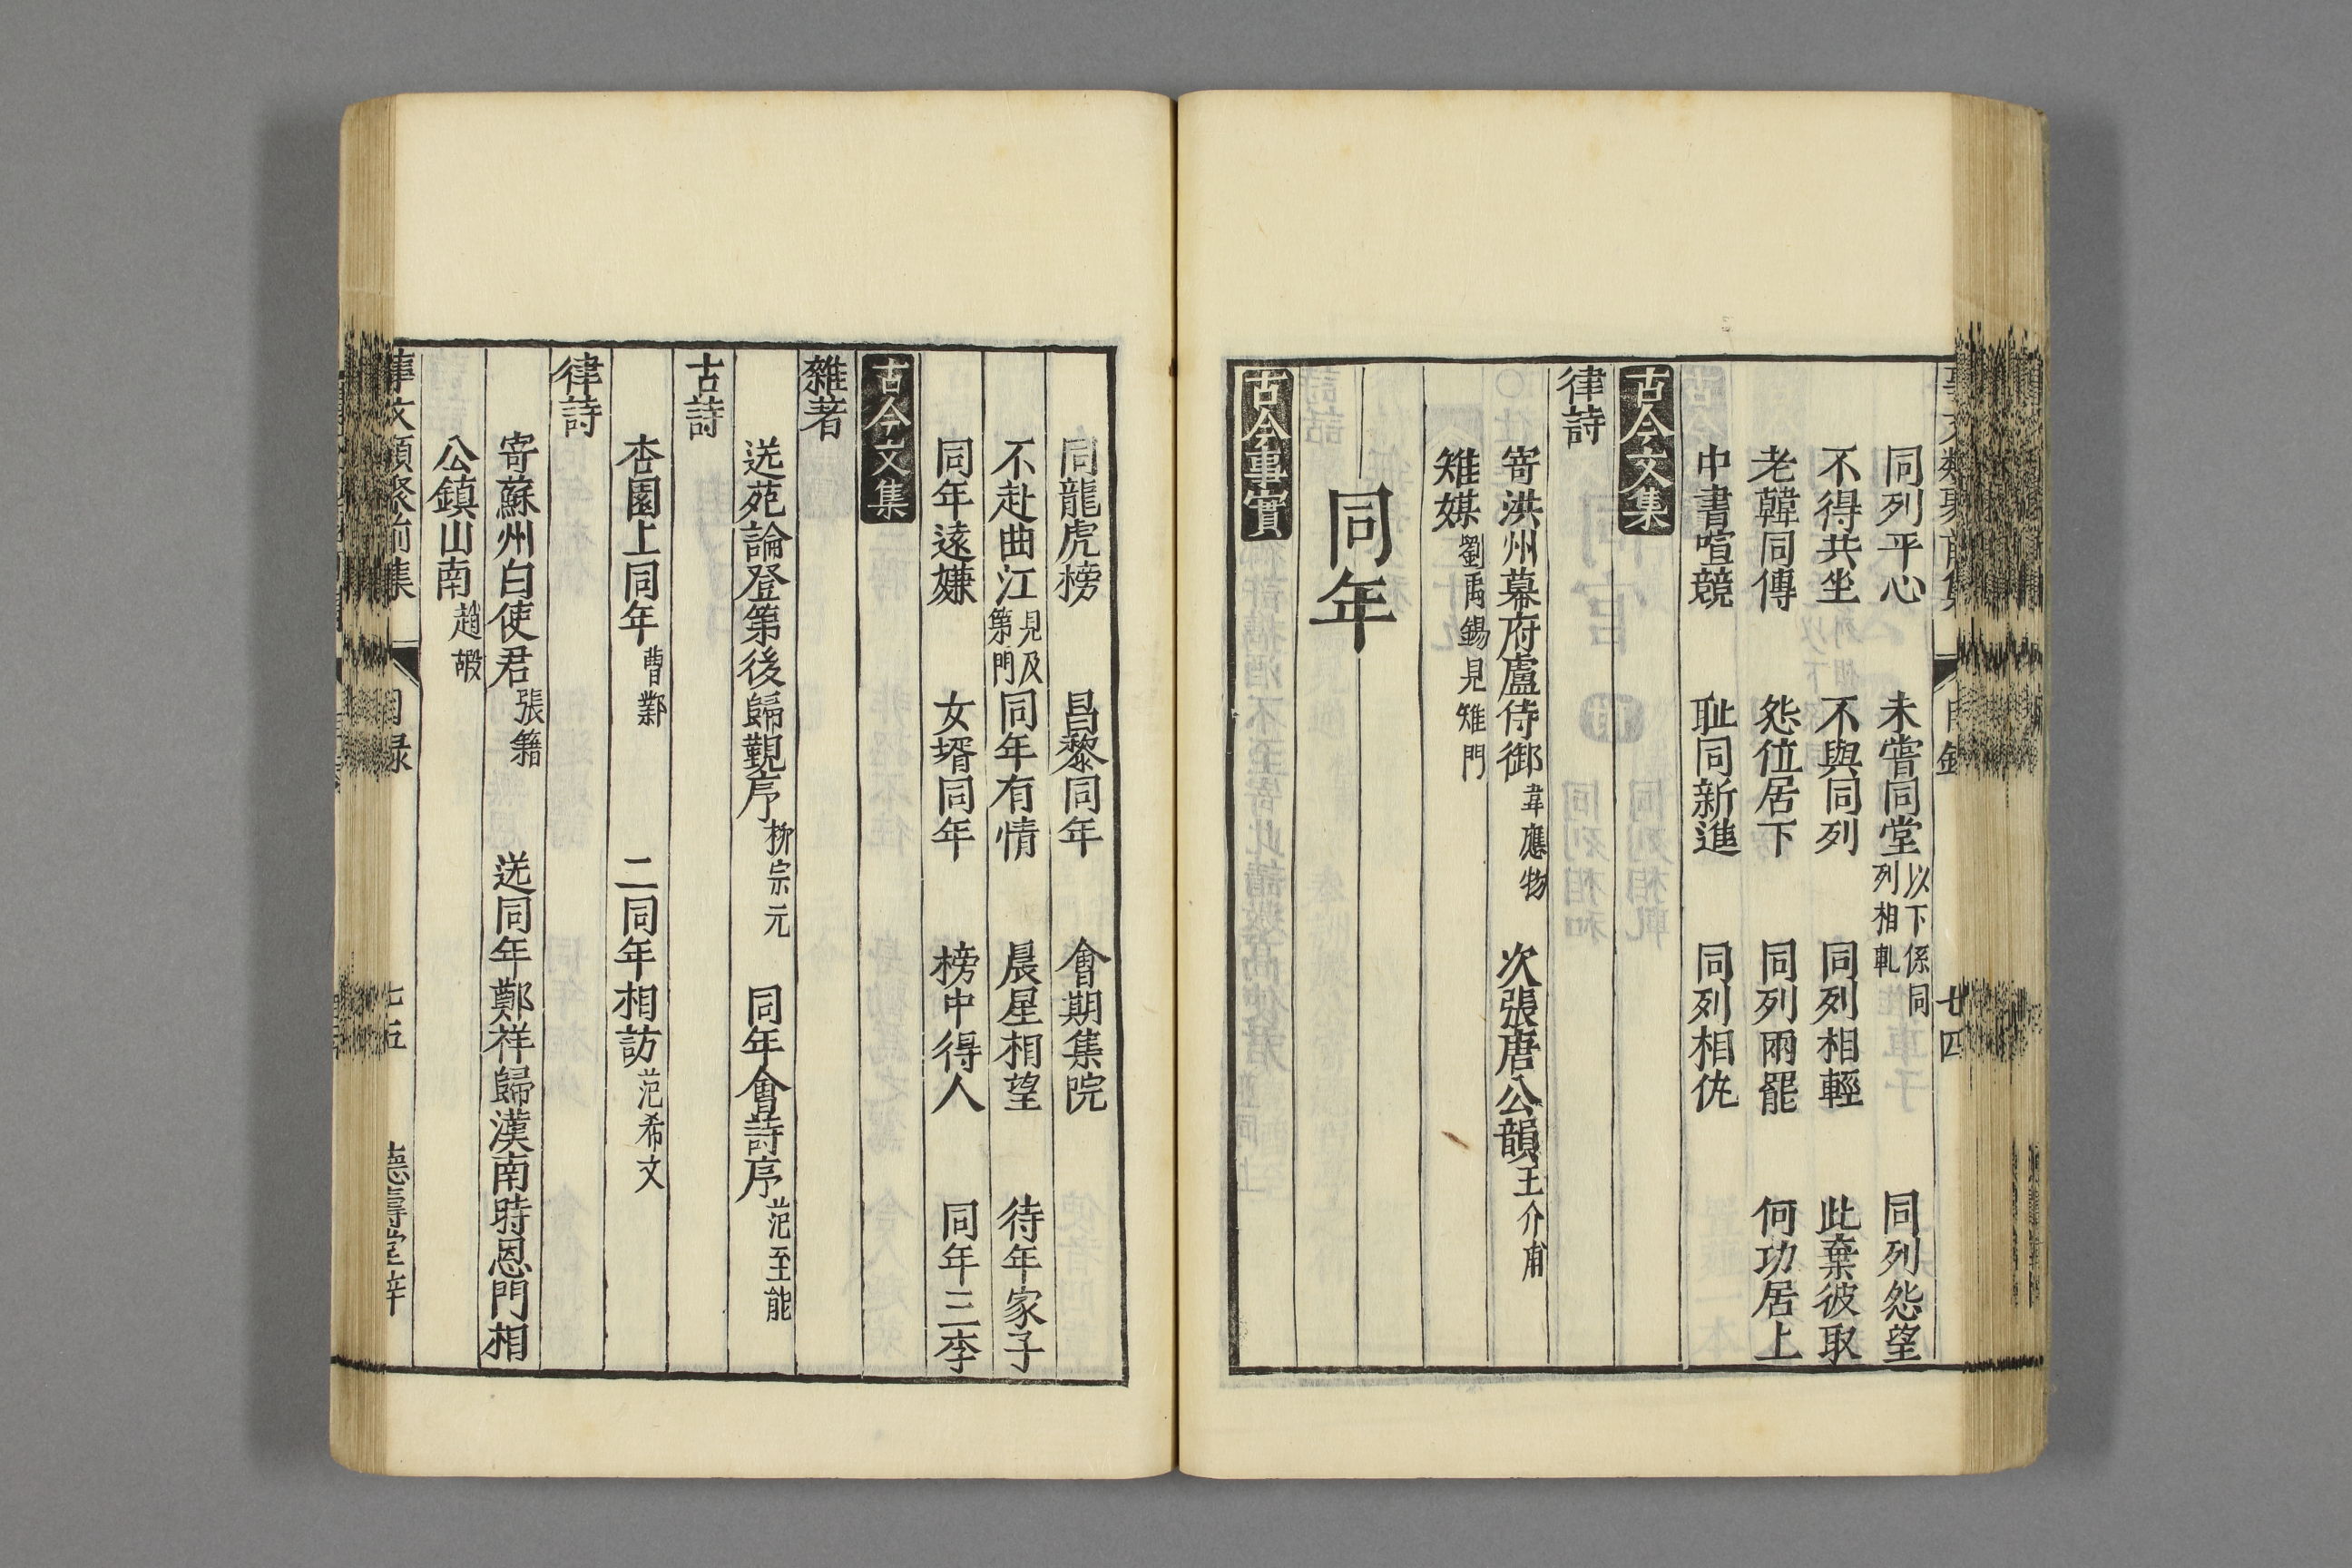 同列平心　未嘗同堂以下係同列相軋　同列怨望
不得共坐　不與同列　同列相輕　此棄彼取
老韓同傳　怨位居下　同列兩罷　何功居上
中書喧競　耻同新進　同列相仇
古今文集
律詩
寄洪州幕府盧侍御韋應物　次張唐公韻王介甫
雉媒劉禹錫見雉門
同年
古今事實
同龍虎榜　昌黎同年　會期集院
不赴曲江見及第門　同年有情　晨星相望　待年家子
同年遠嫌　女壻同年　榜中得人　同年三李
古今文集
雜著
送苑論登第後歸覲序柳宗元　同年會詩序范至能
古詩
杏園上同年曹鄴　二同年相訪范希文
律詩
寄蘇州白使君張籍　送同年鄭祥歸漢南時恩門相
公鎮山南趙嘏